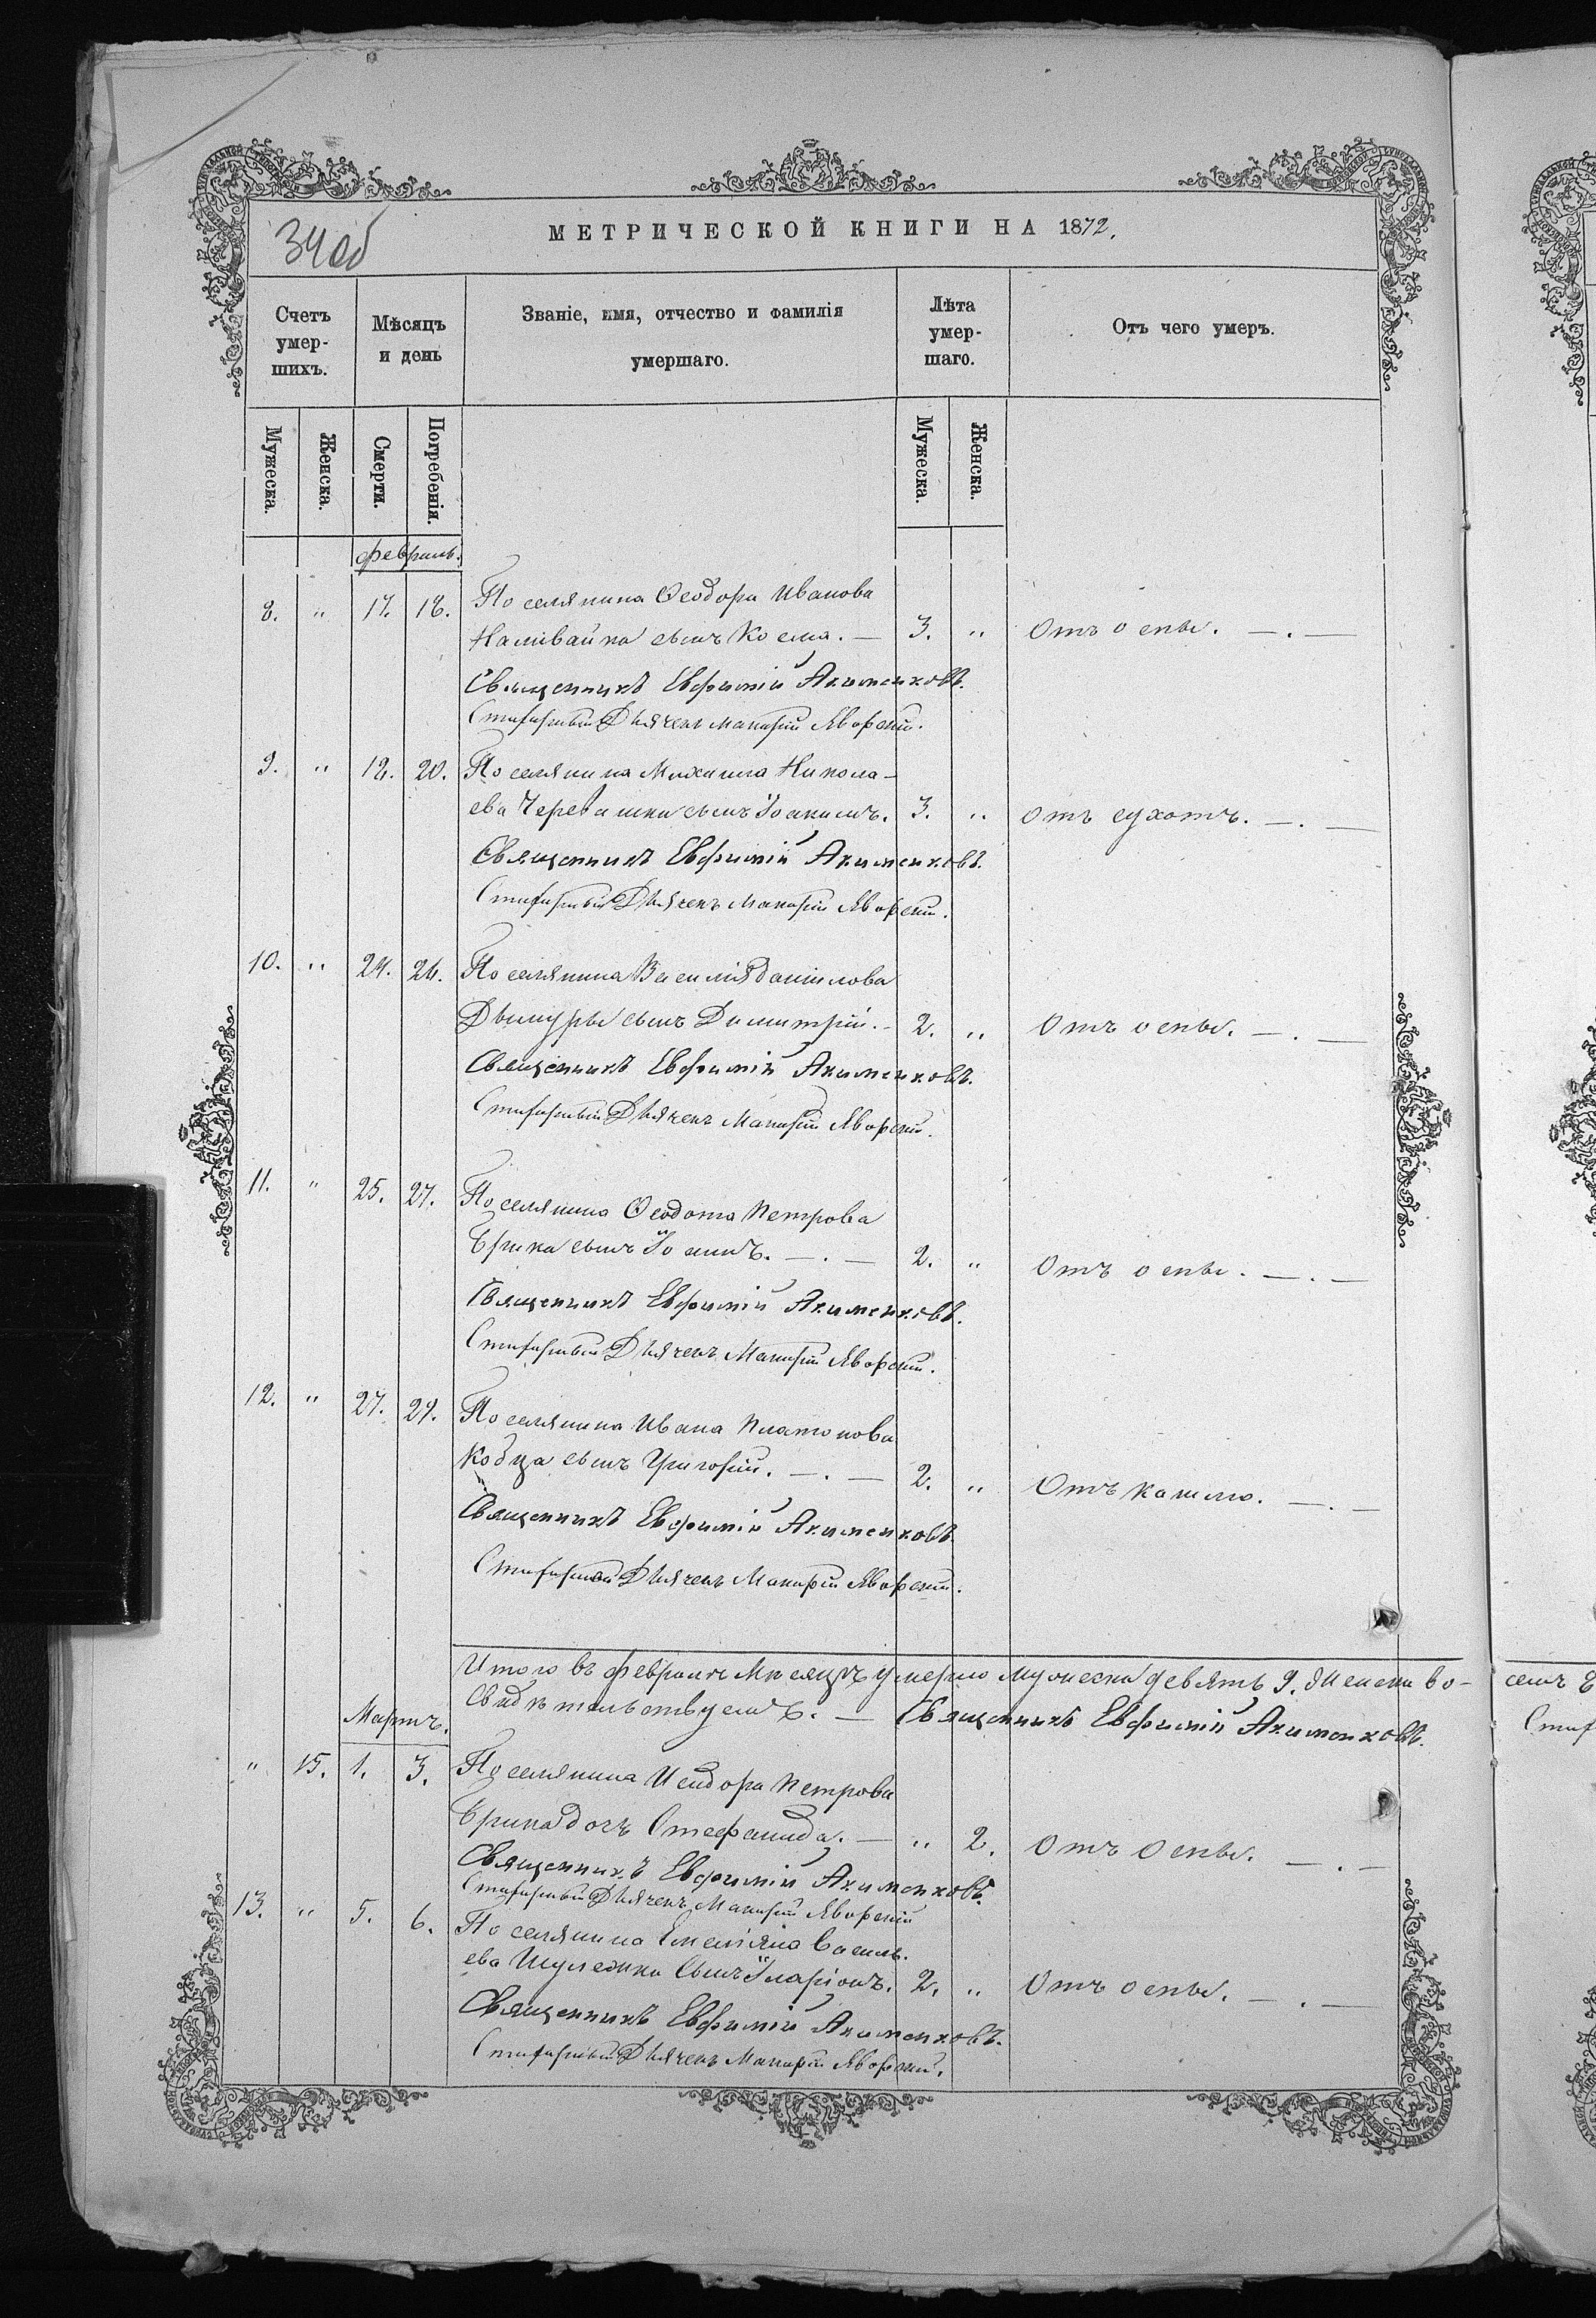 34 об
МЕТРИЧЕСКОЙ КНИГИ НА 1872.
Счетъ умер-шихъ.
Мѣсяцъ и день
Званіе, имя, отчество и фамилія умершаго.
Лѣта умер-шаго.
Отъ чего умеръ.
Мужеска.
Женска.
Смерти.
Погребенія.
Мужеска.
Женска.
Февраль.
8. " 17. 18. Поселянина Ѳеодора Иванова
Наливайка сынъ Косма. — 3. " Отъ оспы. —.—
Священникъ Евфимій Акименковъ.
Стихарный Дьячекъ Макарій Яворскій.
9. " 18. 20. Поселянина Михаила Никола-
ева сынъ Іоакимъ. 3. " Отъ сухотъ. —.—
Священникъ Евфимій Акименковъ.
Стихарный Дьячекъ Макарій Яворскій.
10. " 24. 26. Поселянина Василія Данілова
сынъ Димитрій. — 2. " Отъ оспы. —.—
Священникъ Евфимій Акименковъ.
Стихарный Дьячекъ Макарій Яворскій.
11. " 25. 27. Поселянина Ѳеодота Петрова
Брика сынъ Іоаннъ. —.— 2. " Отъ оспы. —.—
Священникъ Евфимій Акименковъ.
Стихарный Дьячекъ Макарій Яворскій.
12. " 27. 29. Поселянина Ивана Платонова
Кобца сынъ Григорій. —.— 2. " Отъ кашлю. —.—
Священникъ Евфимій Акименковъ.
Стихарный Дьячекъ Макарій Яворскій.
Итого въ февралѣ Мѣсяцѣ умерло мужеска девять 9. Женска во-
Свидѣтельствуемъ. — Священникъ Евфимій Акименковъ.
семъ 8
Стих
Мартъ.
" 15. 1. 3. Поселянина Исидора Петрова
Брика дочь Стефанида. — " 2. Отъ Оспы. —.—
Священникъ Евфимій Акименковъ.
Стихарный Дьячекъ Макарій Яворскій
13. " 5. 6. Поселянина Емеліяна Василь-
ева сынъ Іларіонъ. 2. " Отъ оспы. —.—
Священникъ Евфимій Акименковъ.
Стихарный Дьячекъ Макарій Яворскій.